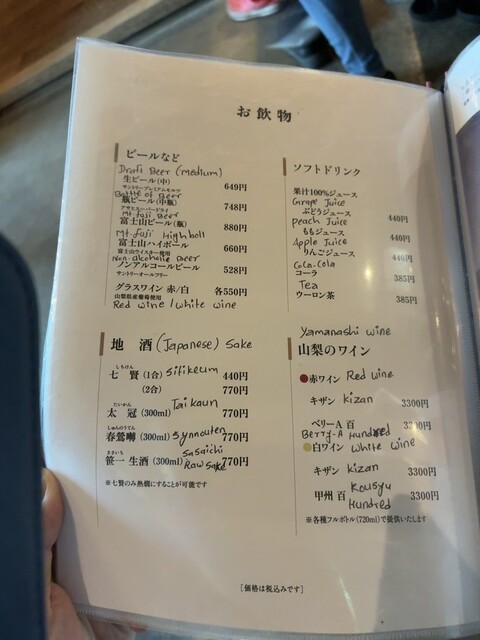 お飲物
ビールなど
Draft Beer (medium)
生ビール(中)
サントリープレミアムモルツ 649円
Bottle of Beer
瓶ビール(中瓶)
アサヒスーパードライ 748円
Mt.fuji Beer
富士山ビール(瓶) 880円
Mt.fuji Highball
富士山ハイボール
富士山ウイスター使用 660円
Non-alcoholic Beer
ノンアルコールビール
サントリーオールフリー 528円
グラスワイン 赤/白 各550円
山梨県産葡萄使用
Red wine / white wine
ソフトドリンク
果汁100%ジュース
Grape Juice
ぶどうジュース 440円
Peach Juice
ももジュース 440円
Apple Juice
りんごジュース 440円
Cola.Cola
コーラ 385円
Tea
ウーロン茶 385円
地 酒 (Japanese) Sake
しちけん
七 賢 (1合) Sitikeum 440円
(2合) 770円
たいかん
太 冠 (300ml) Taikaun 770円
しゅんのうてん
春鶯囀 (300ml) synnouten 770円
ささいち
笹一 生酒 (300ml) Sasaichi Raw Sake 770円
※七賢のみ熱燗にすることが可能です
Yamanashi wine
山梨のワイン
赤ワイン Red wine
キザン kizan 3300円
ベリーA 百 3300円
Berry-A Hundred
白ワイン White wine
キザン kizan 3300円
甲州 百 Kousyu Hundred 3300円
※各種フルボトル(720ml)で提供いたします
[価格は税込みです]